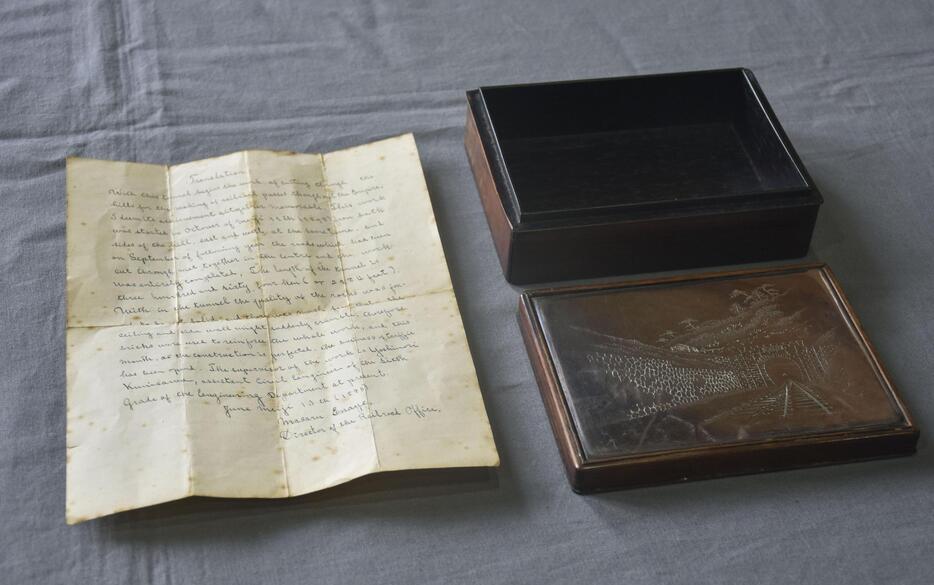 Translation
With this tunnel begins the work of cutting through the
hills for the making of railroad passes throughout the Empire.
I deem its commencement altogether memorable. This work
was started in October of Meiji 11th (1878) from both
sides of the hill, east and west, at the same time, and
on September of following year the rocks which had been
cut through met together in the centre and the work
was entirely completed. The length of the tunnel is
three hundred and sixty four Ken (or 2184 feet).
With in the tunnel the quality of the rocks was
not solid
ceiling and side wall might suddenly crumble, therefore
bricks were used to reinforce the whole work, and this
month, as the construction is perfected, the business
has been opened. The supervisor of the work is
Kunisawa, assistant civil engineer of the Sixth
Grade of the Engineering Department at present.
June Meiji 13th (1880)
Masaru Enouye,
Director of the Railroad Office.